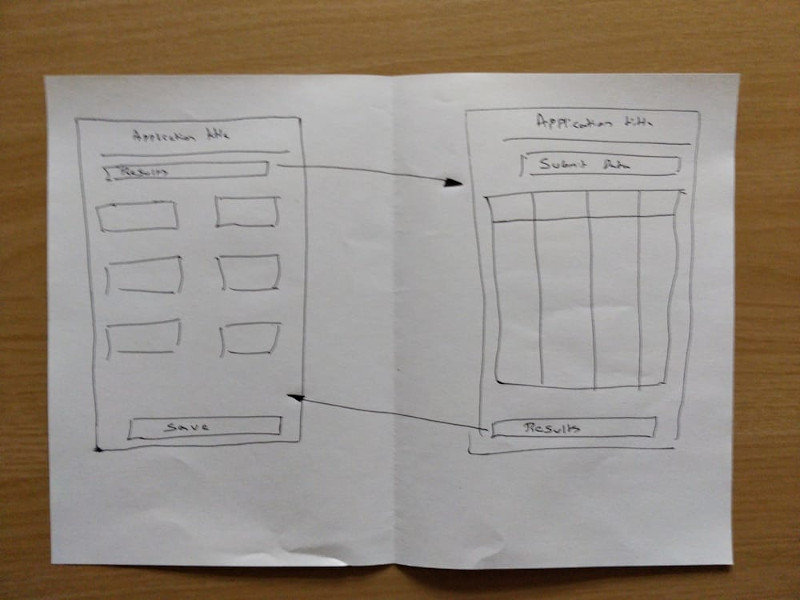 Application title
Results
Save
Application title
Submit Data
Results